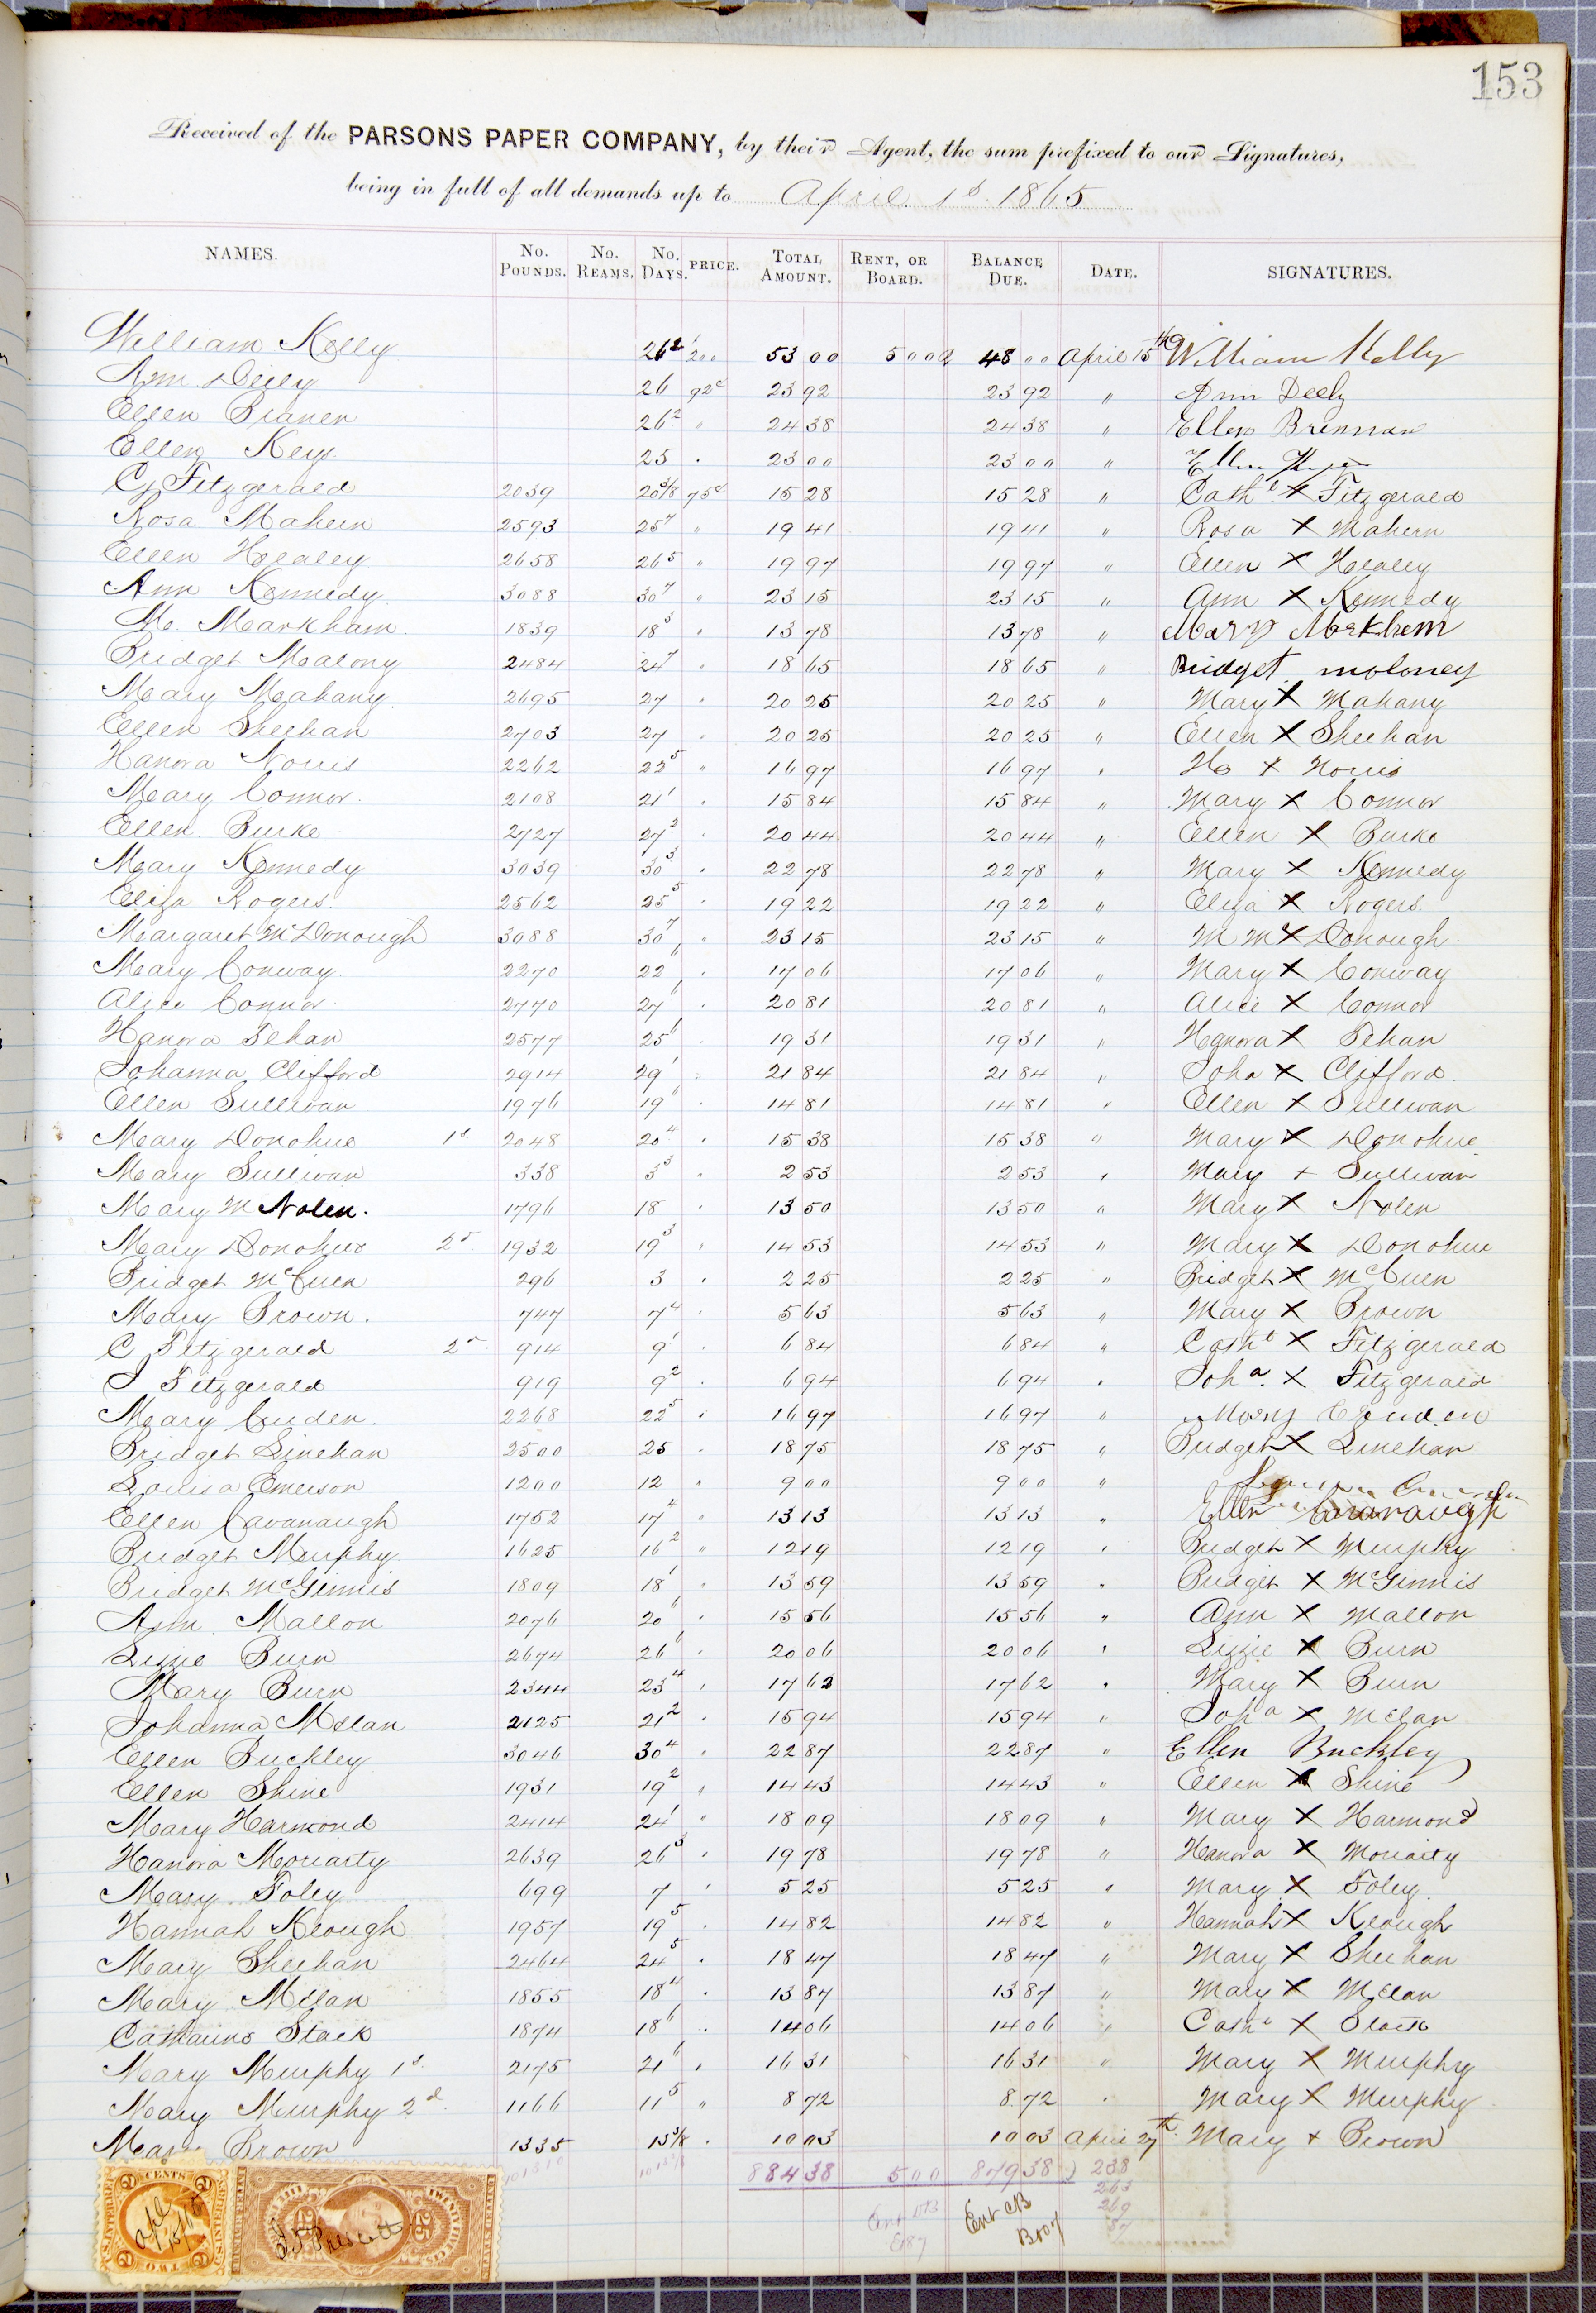 153
Received of the PARSONS PAPER COMPANY, by their Agent, the sum prefixed to our Signatures,
being in full of all demands up to April 1st 1865
NAMES. No. POUNDS. No. REAMS. No. DAYS. PRICE. TOTAL AMOUNT. RENT, OR BOARD. BALANCE DUE. DATE. SIGNATURES.
William Kelly 26 2 200 53 00 5 00 48 00 April 15th William Kelly
Ann Deely 26 92c 23 92 23 92 " Ann Deely
Ellen Branen 26 2 " 24 38 24 38 " Ellen Brennan
Ellen Keys 25 " 23 00 23 00 " Ellen
C Fitzgerald 2039 20 3/8 75c 15 28 15 28 " Cath X Fitzgerald
Rosa Mahern 2593 25 7 " 19 41 19 41 " Rosa X Mahern
Ellen Healey 2658 26 5 " 19 97 19 97 " Ellen X Healey
Ann Kennedy 3088 30 7 " 23 15 23 15 " Ann X Kennedy
M. Markham 1839 18 3 " 13 78 13 78 " Mary Markhem
Bridget Malony 2484 24 7 " 18 65 18 65 " Bridget moloney
Mary Mahany 2695 27 " 20 25 20 25 " Mary X Mahany
Ellen Sheehan 2703 27 " 20 25 20 25 " Ellen X Sheehan
Hanora Norris 2262 22 5 " 16 97 16 97 " Ho X Norris
Mary Connor 2108 21 1 " 15 84 15 84 " Mary X Connor
Ellen Burke 2727 27 2 " 20 44 20 44 " Ellen X Burke
Mary Kennedy 3039 30 3 " 22 78 22 78 " Mary X Kennedy
Eliza Rogers 2562 25 5 " 19 22 19 22 " Eliza X Rogers
Margaret McDonough 3088 30 7 " 23 15 23 15 " M Mc X Donough
Mary Conway 2270 22 6 " 17 06 17 06 " Mary X Conway
Alice Connor 2770 27 6 " 20 81 20 81 " Alice X Connor
Hanora Sehan 2577 25 6 " 19 31 19 31 " Hanora X Sehan
Johanna Clifford 2914 29 1 " 21 84 21 84 " Joha X Clifford
Ellen Sullivan 1976 19 6 " 14 81 14 81 " Ellen X Sullivan
Mary Donohue 1st 2048 20 4 " 15 38 15 38 " Mary X Donohue
Mary Sullivan 338 3 3 " 2 53 2 53 " Mary + Sullivan
Mary M Nolen. 1796 18 " 13 50 13 50 " Mary X Nolen
Mary Donohue 2d 1932 19 3 " 14 53 14 53 " Mary X Donohue
Bridget McCuen 296 3 " 2 25 2 25 " Bridget X McCuen
Mary Brown. 747 7 4 " 5 63 5 63 " Mary X Brown
C Fitzgerald 2d 914 9 1 " 6 84 6 84 " Cath X Fitzgerald
J Fitzgerald 919 9 2 " 6 94 6 94 " Joha X Fitzgerald
Mary Cruden. 2268 22 5 " 16 97 16 97 " Mary
Bridget Linehan 2500 25 " 18 75 18 75 " Bridget X Linehan
Louisa Emerson 1200 12 " 9 00 9 00 "
Ellen Cavanaugh 1752 17 4 " 13 13 13 13 " Ellen Cavanaugh
Bridget Murphy 1625 16 2 " 12 19 12 19 " Bridget X Murphy
Bridget McGinnis 1809 18 1 " 13 59 13 59 " Bridget X McGinnis
Ann Mallon 2076 20 6 " 15 56 15 56 " Ann X Mallon
Lizzie Burn 2674 26 6 " 20 06 20 06 " Lizzie X Burn
Mary Burn 2344 23 4 " 17 62 17 62 " Mary X Burn
Johanna McElan 2125 21 2 " 15 94 15 94 " Joha X McElan
Ellen Buckley 3046 30 4 " 22 87 22 87 " Ellen Buckley
Ellen Shine 1931 19 2 " 14 43 14 43 " Ellen X Shine
Mary Harmond 2414 24 1 " 18 09 18 09 " Mary X Harmond
Hanora Moriarty 2639 26 3 " 19 78 19 78 " Hanora X Moriarty
Mary Foley 699 7 " 5 25 5 25 " Mary X Foley
Hannah Keough 1957 19 5 " 14 82 14 82 " Hannah X Keough
Mary Sheehan 2464 24 5 " 18 47 18 47 " Mary X Sheehan
Mary McElan 1855 18 4 " 13 87 13 87 " Mary X McElan
Catharine Stack 1874 18 6 " 14 06 14 06 " Cath X Stack
Mary Murphy 1st 2175 21 6 " 16 31 16 31 " Mary X Murphy
Mary Murphy 2d 1166 11 5 " 8 72 8 72 " Mary X Murphy
Mary Brown 1335 13 3/8 " 10 03 10 03 April 27th Mary + Brown
884 38 5 00 879 38 238
263
269
Ent CB
B107
2 CENTS U.S. INTER. REV. TWO
Apl 15/65
25 TWENTY FIVE
Prescott